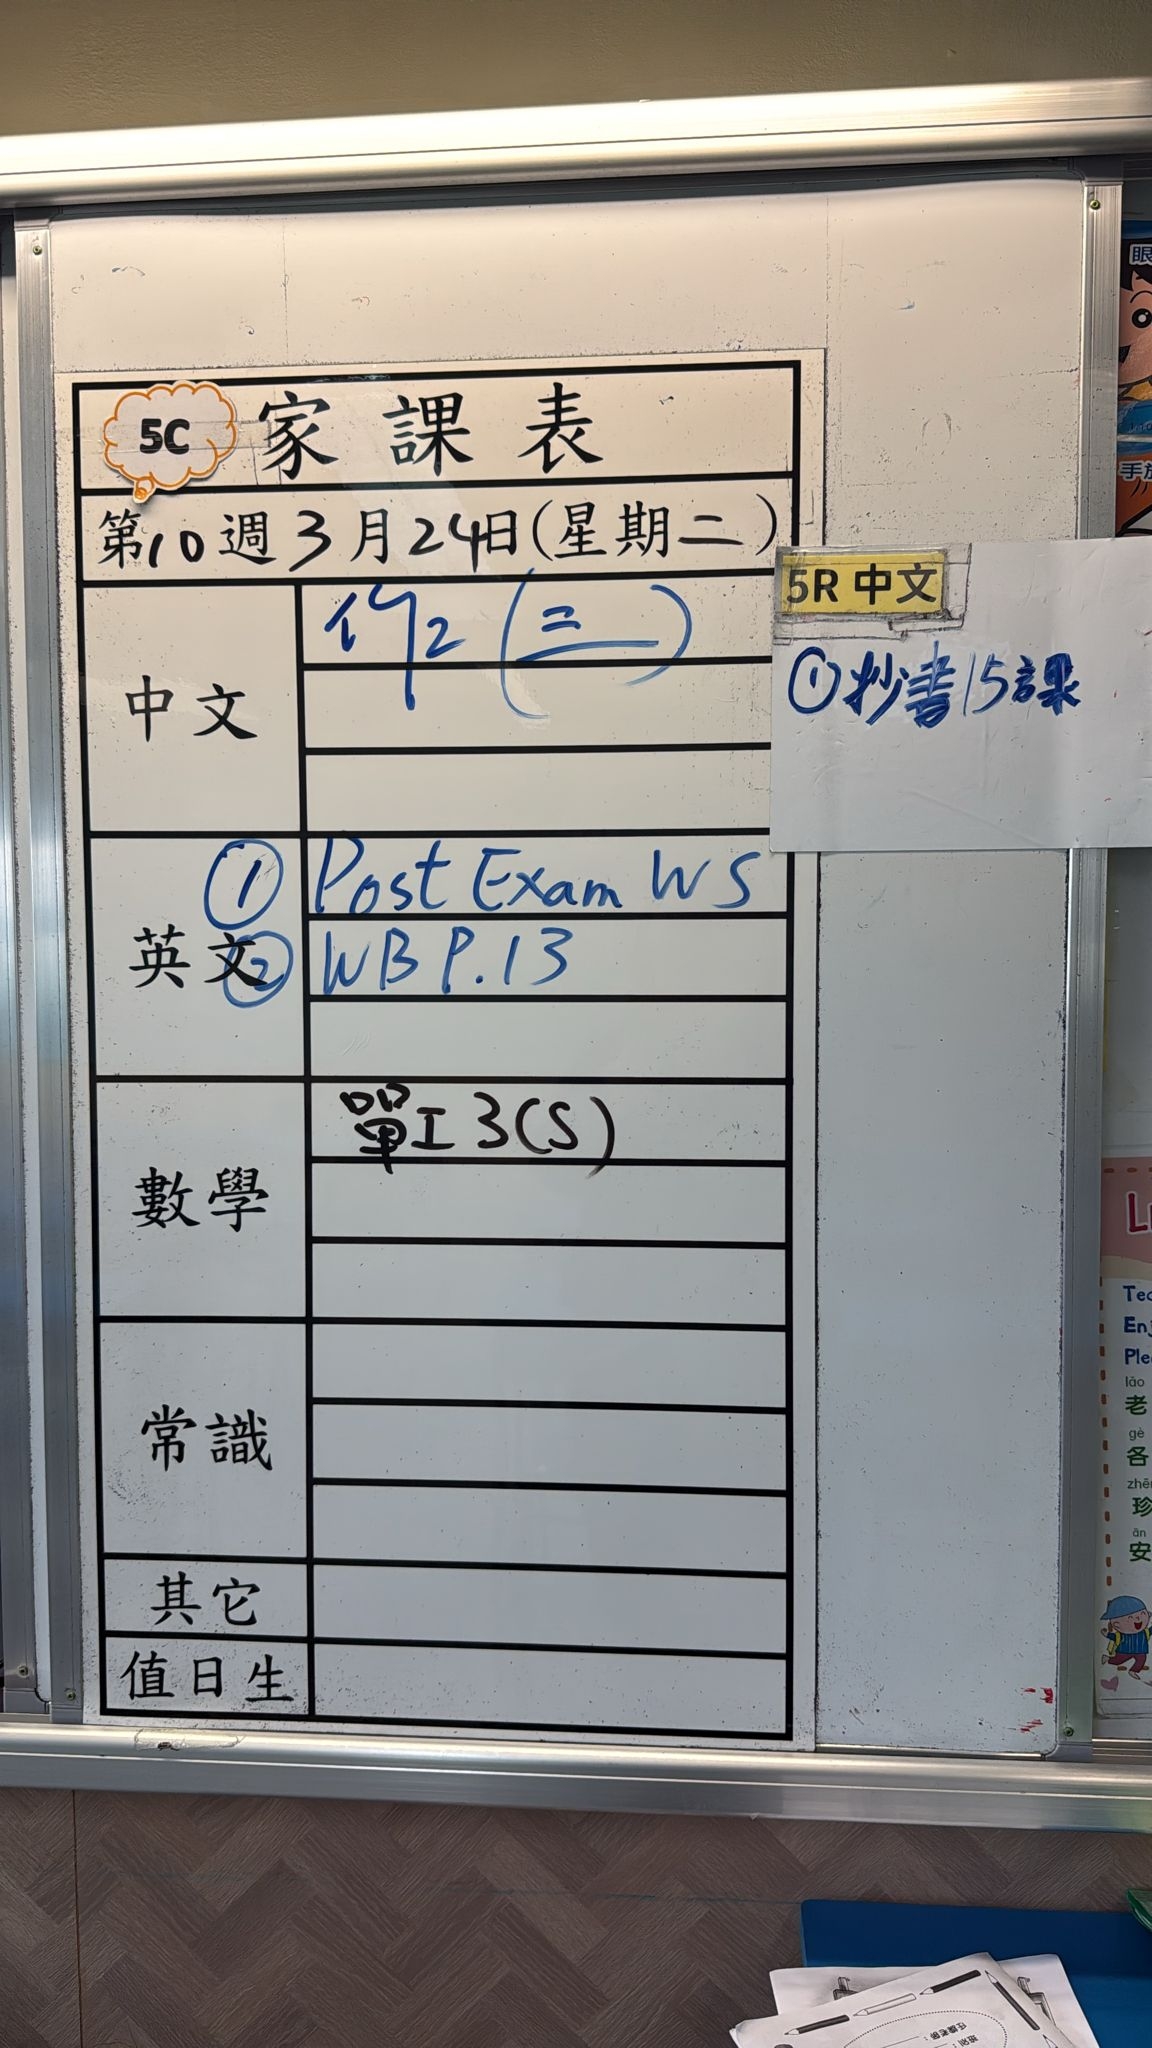 5C 家課表
第10週3月24日(星期二)
中文
作2(三)
5R 中文
①抄書15課
英文
① Post Exam WS
② WB P.13
數學
單工3(S)
常識
其它
值日生
眼
手放
Tea
Enj
Plea
lǎo
老
gè
各
zhēn
珍
ān
安